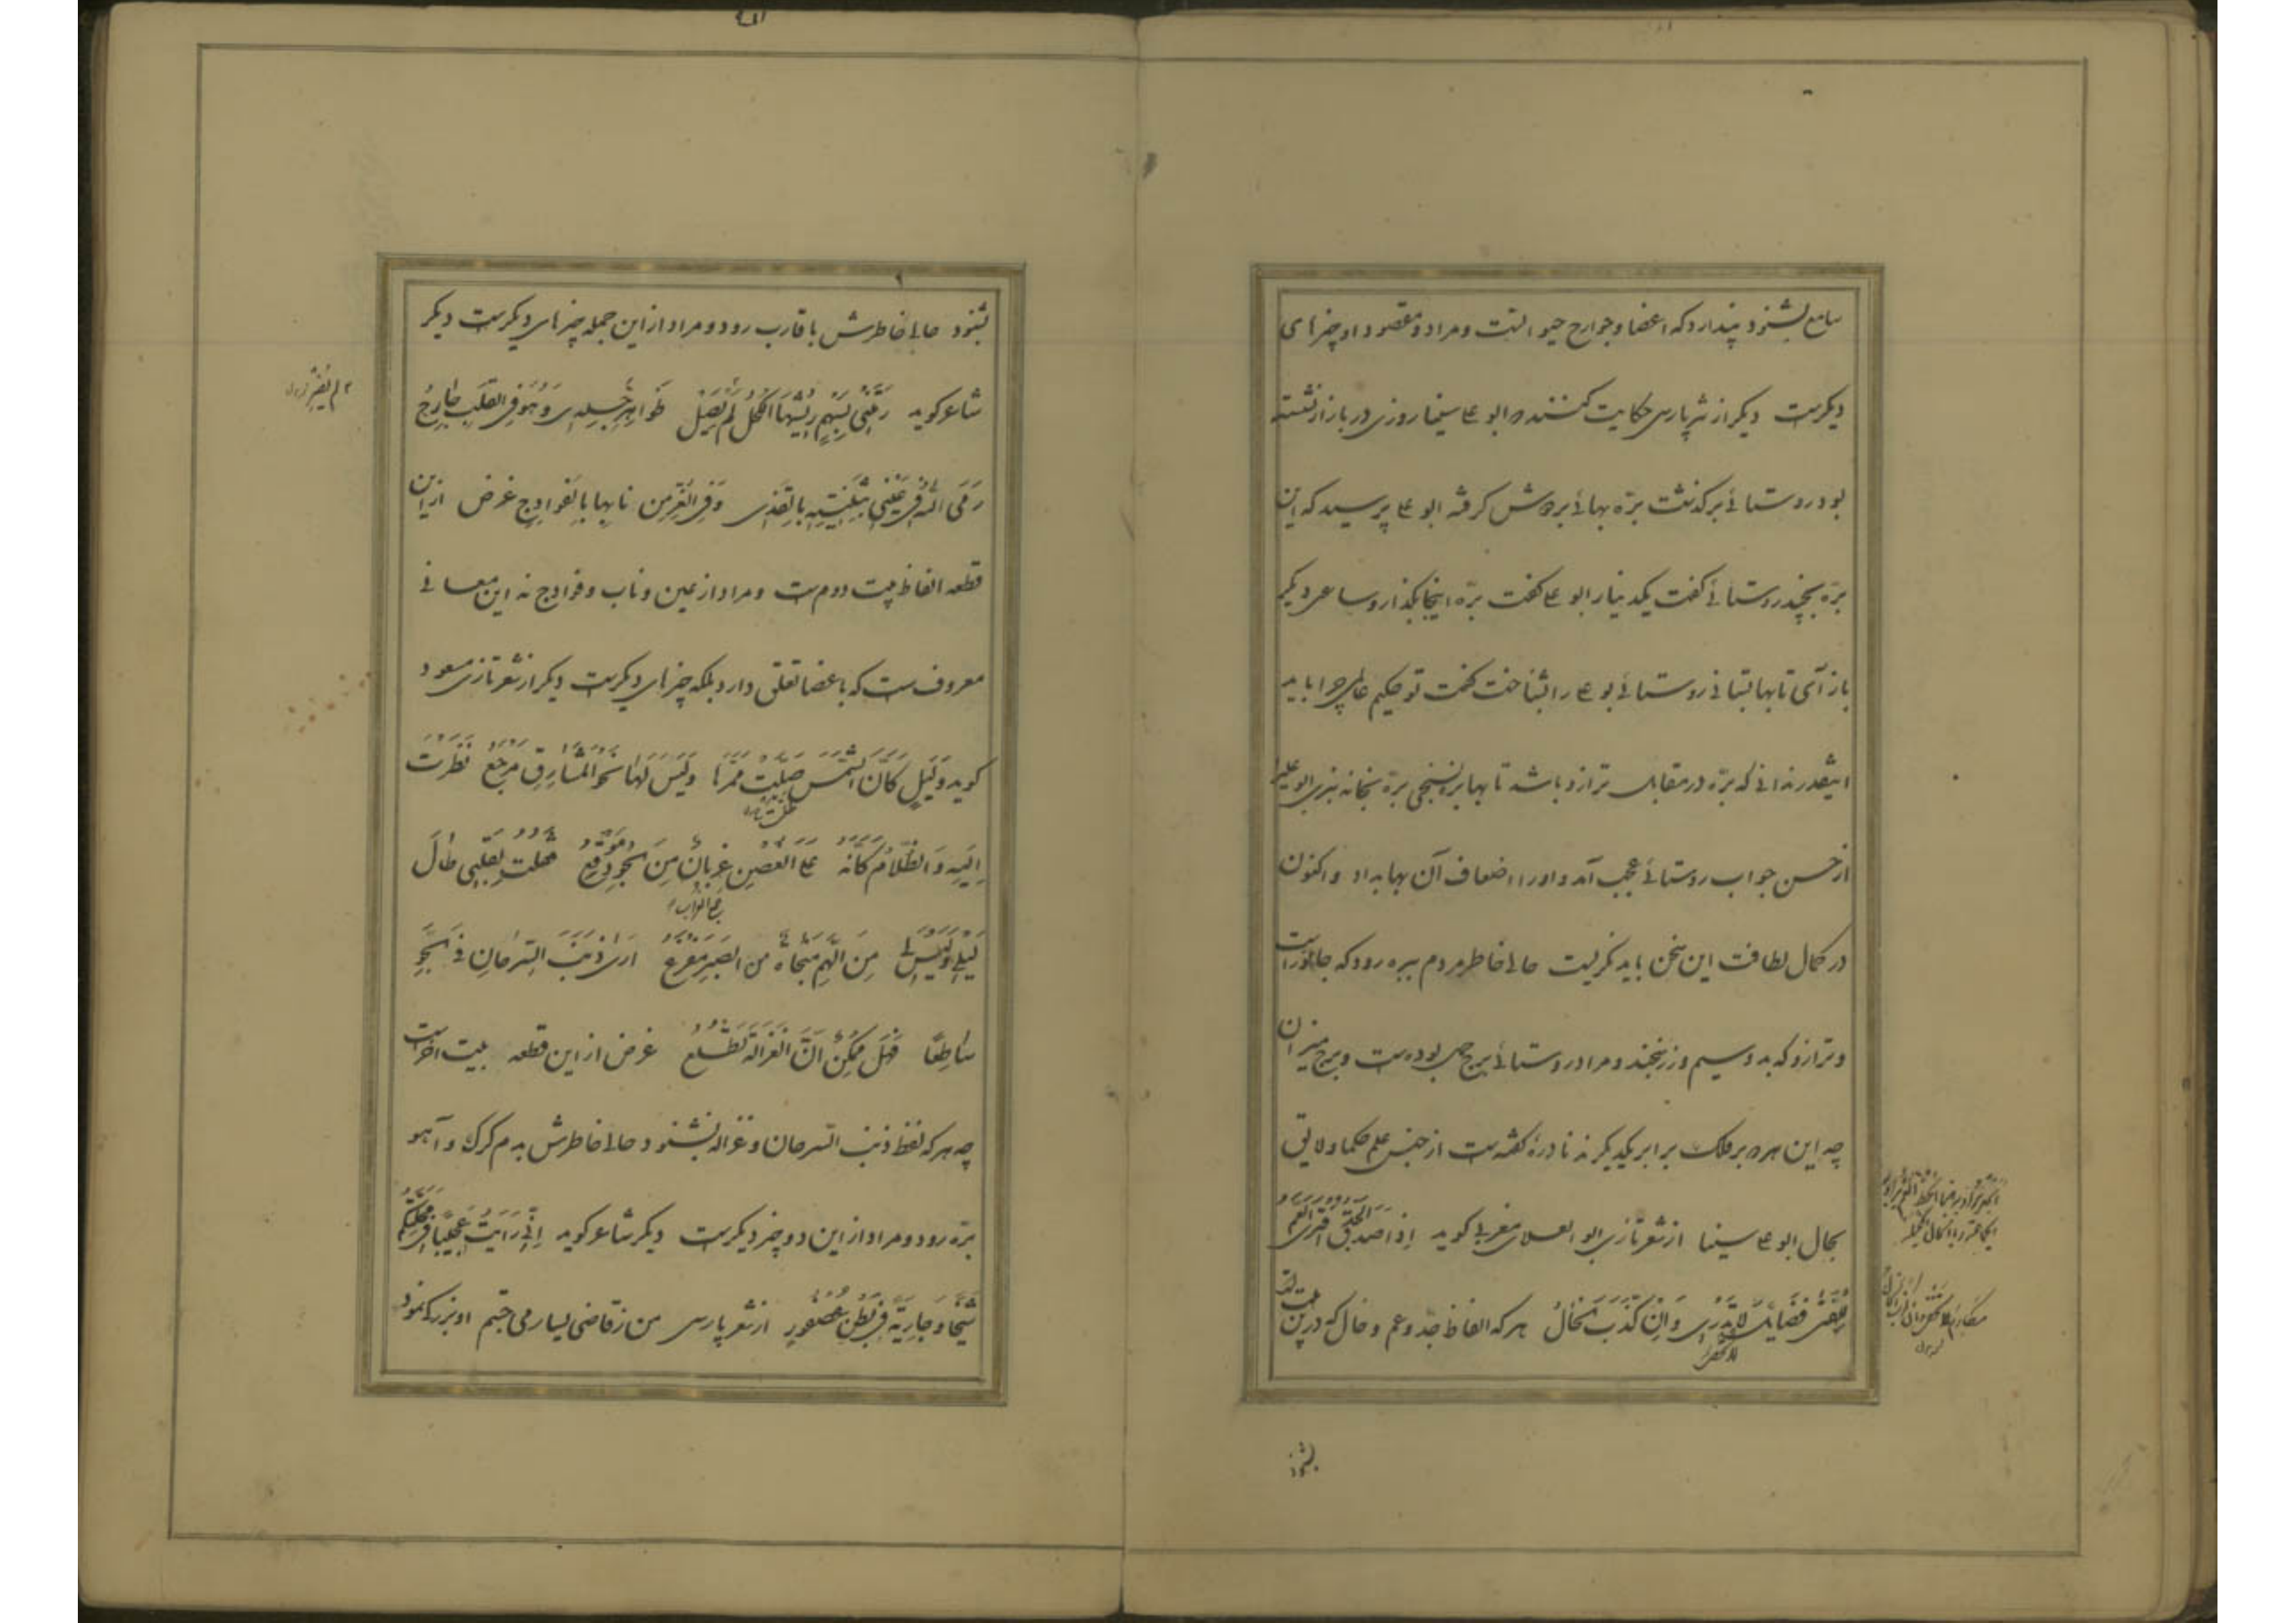 سامع بشنود پندارد که اعضا و جوارح حیوانست و مراد و مقصود او چیزهای
دیگرست دیگر از نثر پارسی حکایت کنند که ابو علی سینا روزی در بازار نشسته
بود روستائی برگذشت بره بهائی بر دوش گرفته ابو علی پرسید که این
بره بچند روستائی گفت یکدینار ابو علی گفت بره اینجا بگذار و ساعتی دیگر
باز آی تا بها بستانی روستائی بو علی را بشناخت گفت تو حکیم عالمی چرا باید
اینقدر ندانی که بره در مقابل ترازو باشد تا بها برنسنجی بره بخانه نبری ابو علی را
از حسن جواب روستائی عجب آمد و اورا اضعاف آن بها بداد و اکنون
در کمال لطافت این سخن باید نگریست حالی خاطر مردم ببره رود که جانورست
و ترازو که بدو سیم و زر سنجند و مراد روستائی برج حمل بوده ست و برج میزان
چه این هر دو بر فلک برابر یکدیگرند نادره گفته ست از جنس علم حکما و لایق
بحال ابو علی سینا از شعر تازی ابو العلای مغربی گوید إذا صدق الجد افتری العم
للفتی مکارم لا تکری و ان کذب الخال هرکه الفاظ جد و عم و خال که درین بیت است
بشنو
بشنود حالی خاطرش باقارب رود و مراد ازین جمله چیزهای دیگرست دیگر
شاعر گوید رمتنی بسهم ریشها الکحل لم یصل ظواهر جلدی و هو فی القلب جارح
لم یضر
رمی الله فی عینی بثینة بالقذی و فی الغر من انیابها بالقوادح غرض ازین
قطعه الفاظ بیت دوم ست و مراد از عین و ناب و قوادح نه این معانی
معروف ست که باعضا تعلق دارد بلکه چیزهای دیگرست دیگر از شعر تازی مسعود
گوید و لیل کأن الشمس ضلت ممرها و لیس لها نحو المشارق مرجع نظرت
إلیه و الظلام کأنه علی العین غربان من الجو وقع فقلت لقلبی طال
لیلی و لیس لی من الهم منجاة من الصبر مفزع اری ذنب السرحان فی الجو
ساطعا فهل ممکن ان الغزالة تطلع غرض از این قطعه بیت آخرست
چه هرکه لفظ ذنب السرحان و غزاله بشنود حالی خاطرش بدم گرگ و آهو
بره رود و مراد از این دو چیز دیگرست دیگر شاعر گوید إنی رایت عجیبا فی محلتکم
شیخا و جاریة فی بطن عصفور از شعر پارسی من ز قاضی یسار می جستم او بزرگی نمود